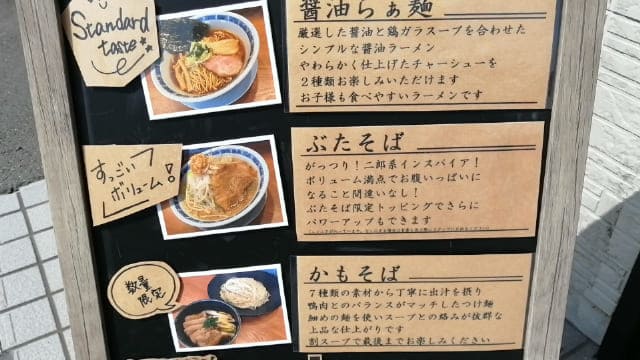 Standard
taste
醤油らぁ麺
厳選した醤油と鶏ガラスープを合わせた
シンプルな醤油ラーメン
やわらかく仕上げたチャーシューを
２種類お楽しみいただけます
お子様も食べやすいラーメンです
すっごい
ボリューム!
ぶたそば
がっつり！二郎系インスパイア！
ボリューム満点でお腹いっぱいに
なること間違いなし！
ぶたそば限定トッピングでさらに
パワーアップもできます
数量
限定
かもそば
７種類の素材から丁寧に出汁を摂り
鴨肉とのバランスがマッチしたつけ麺
細めの麺を使いスープとの絡みが抜群な
上品な仕上がりです
割スープで最後までお楽しみください